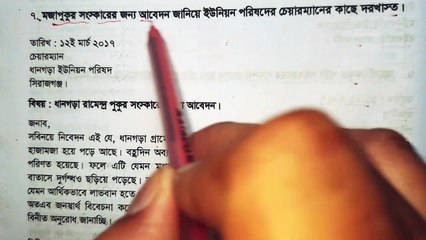 ৭. মজাপুকুর সংস্কারের জন্য আবেদন জানিয়ে ইউনিয়ন পরিষদের চেয়ারম্যানের কাছে দরখাস্ত।
তারিখ : ১২ই মার্চ ২০১৭
চেয়ারম্যান
ধানগড়া ইউনিয়ন পরিষদ
সিরাজগঞ্জ।
বিষয় : ধানগড়া রামেন্দ্র পুকুর সংস্কারে আবেদন।
জনাব,
সবিনয়ে নিবেদন এই যে, ধানগড়া
হাজামজা হয়ে পড়ে আছে। বহুদিন
পরিণত হয়েছে। ফলে এটি যেমন
বাতাসে দুর্গন্ধও ছড়িয়ে পড়েছে।
যেমন আর্থিকভাবে লাভবান হতে
অতএব জনস্বার্থ বিবেচনা
বিনীত অনুরোধ জানাচ্ছি।